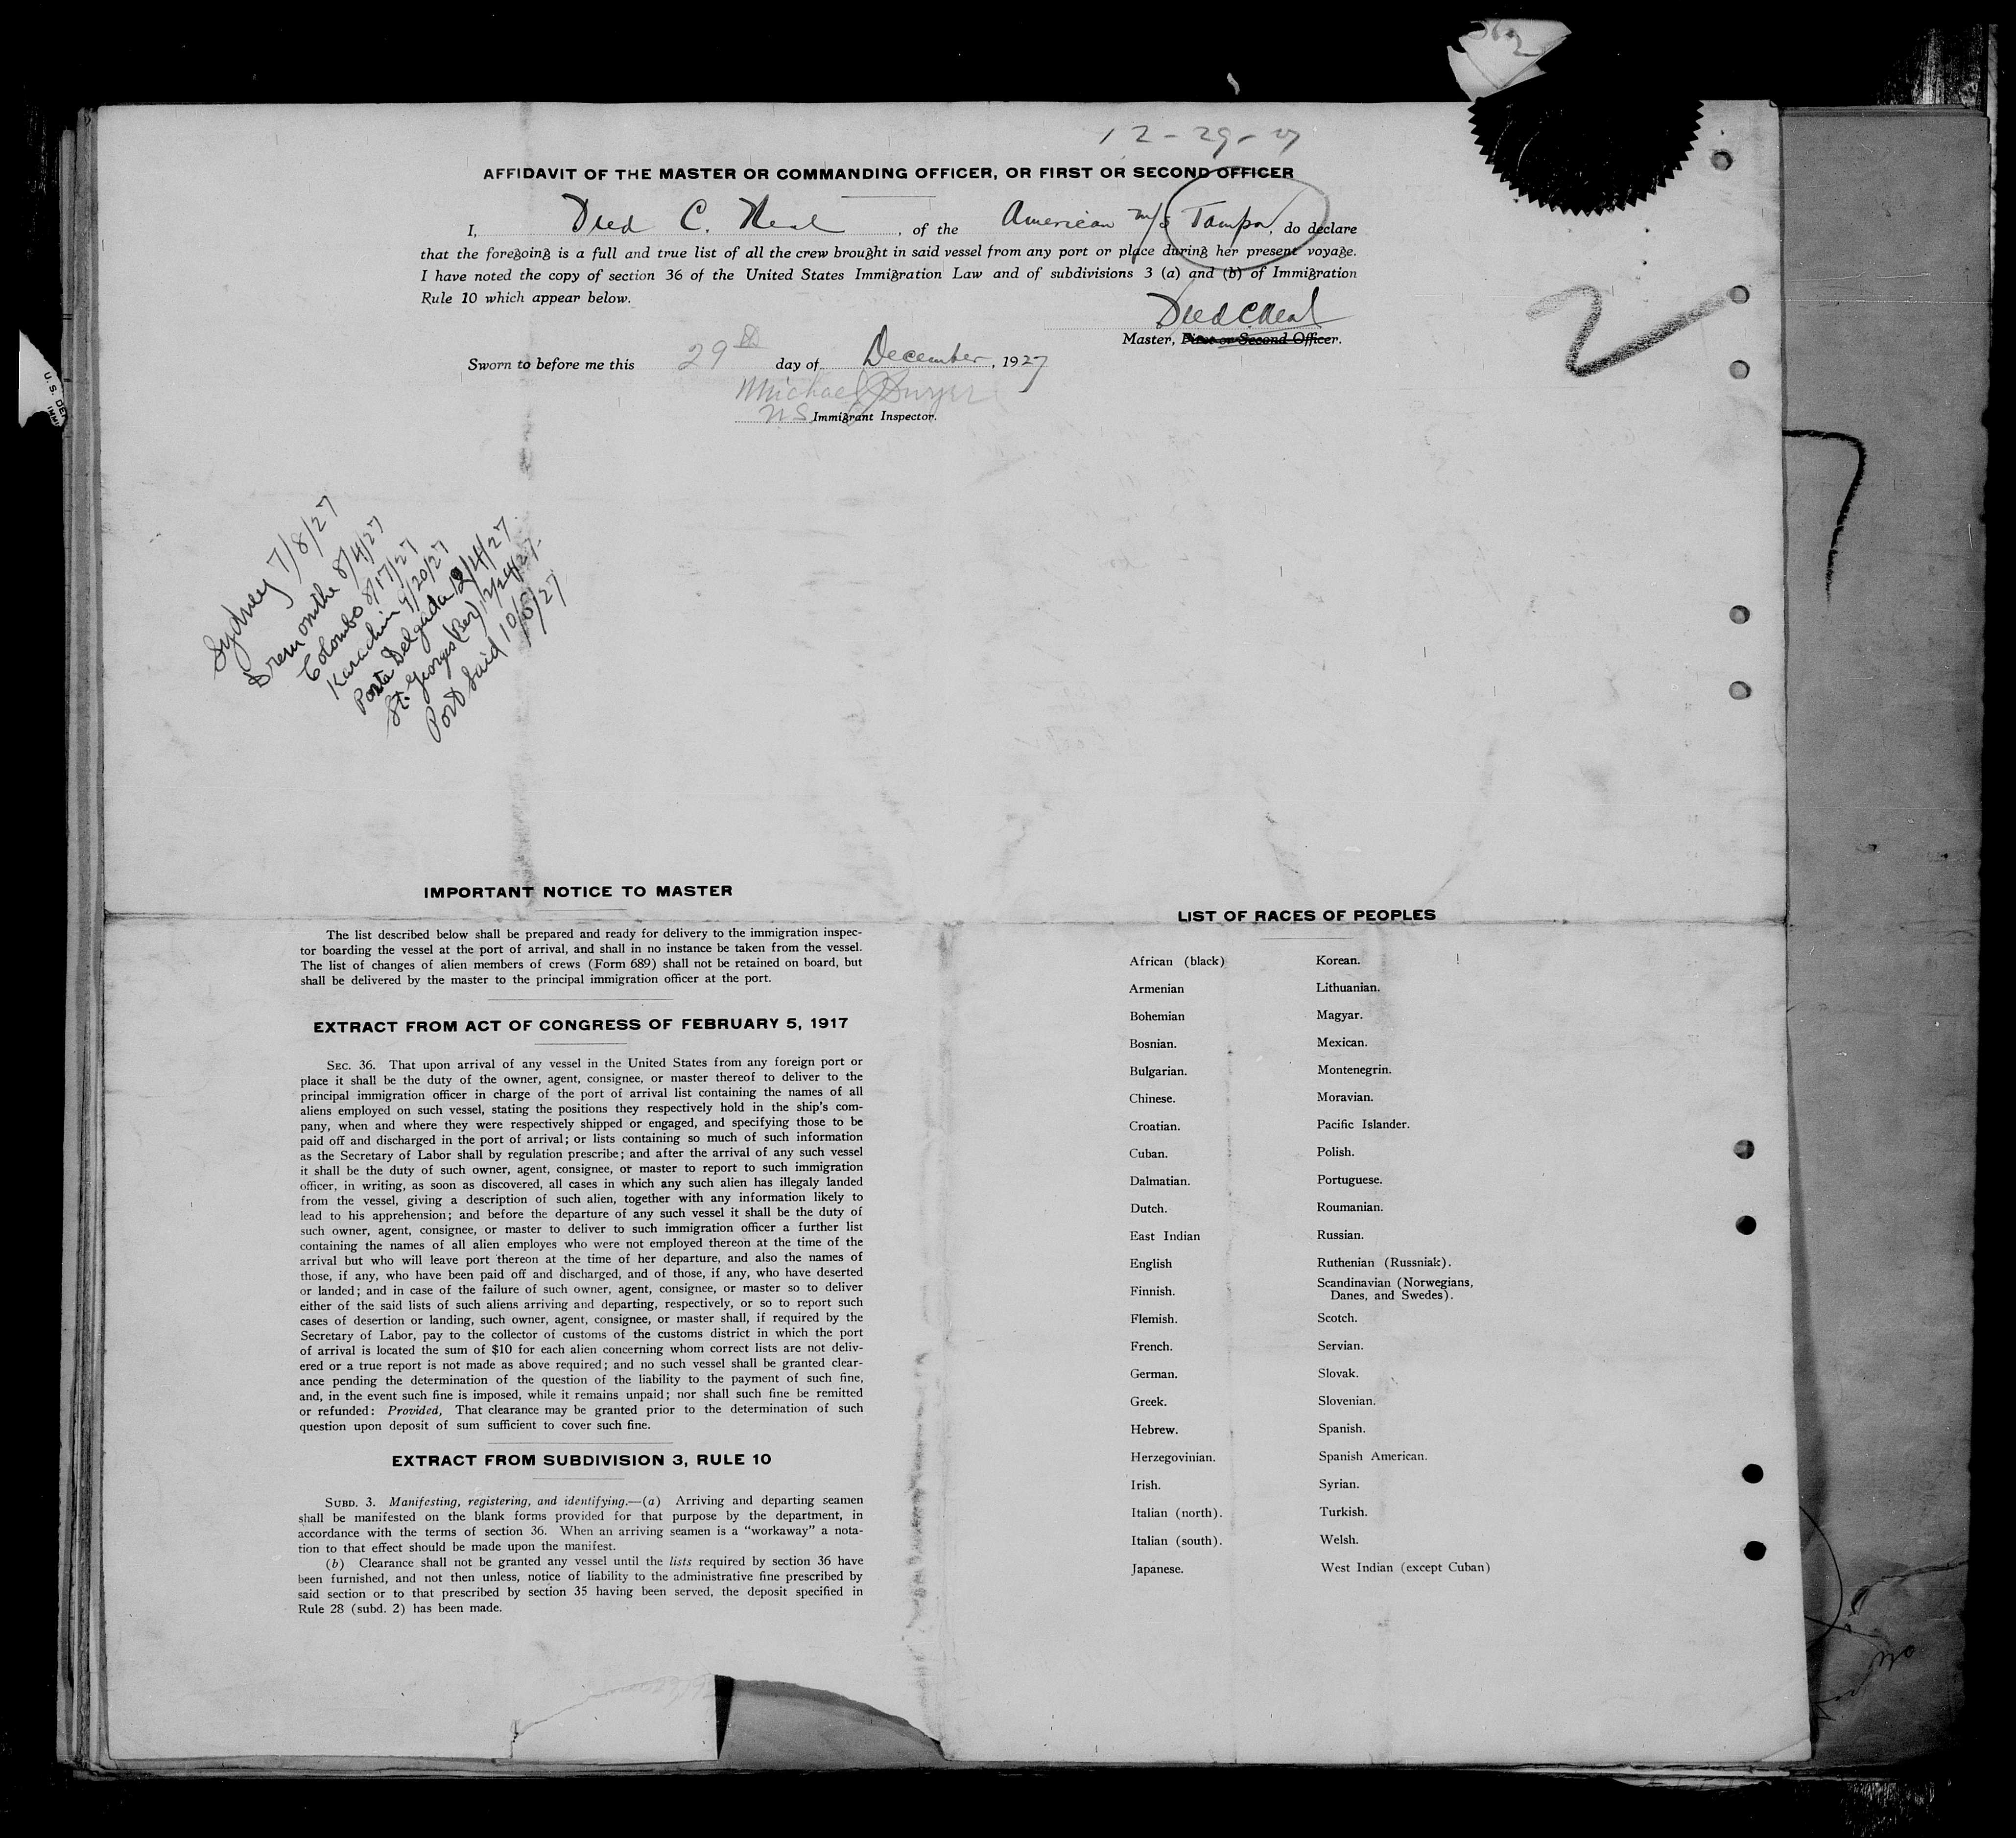 12-29-27
AFFIDAVIT OF THE MASTER OR COMMANDING OFFICER, OR FIRST OR SECOND OFFICER
I, Dred C. Neal, of the American m/s Tampa, do declare
that the foregoing is a full and true list of all the crew brought in said vessel from any port or place during her present voyage.
I have noted the copy of section 36 of the United States Immigration Law and of subdivisions 3 (a) and (b) of Immigration
Rule 10 which appear below.
Dred C Neal
Master, First or Second Officer.
Sworn to before me this 29th day of December, 1927
Michael J Dwyer
U.S. Immigrant Inspector.
2
Sydney 7/8/27
8/4/27
Colombo 8/17/27
Karachi 9/20/27
Ponta Delgada 12/4/27
St. Georges (Ber) 12/24/27
Port Said
IMPORTANT NOTICE TO MASTER
The list described below shall be prepared and ready for delivery to the immigration inspec-
tor boarding the vessel at the port of arrival, and shall in no instance be taken from the vessel.
The list of changes of alien members of crews (Form 689) shall not be retained on board, but
shall be delivered by the master to the principal immigration officer at the port.
EXTRACT FROM ACT OF CONGRESS OF FEBRUARY 5, 1917
SEC. 36. That upon arrival of any vessel in the United States from any foreign port or
place it shall be the duty of the owner, agent, consignee, or master thereof to deliver to the
principal immigration officer in charge of the port of arrival list containing the names of all
aliens employed on such vessel, stating the positions they respectively hold in the ship's com-
pany, when and where they were respectively shipped or engaged, and specifying those to be
paid off and discharged in the port of arrival; or lists containing so much of such information
as the Secretary of Labor shall by regulation prescribe; and after the arrival of any such vessel
it shall be the duty of such owner, agent, consignee, or master to report to such immigration
officer, in writing, as soon as discovered, all cases in which any such alien has illegaly landed
from the vessel, giving a description of such alien, together with any information likely to
lead to his apprehension; and before the departure of any such vessel it shall be the duty of
such owner, agent, consignee, or master to deliver to such immigration officer a further list
containing the names of all alien employes who were not employed thereon at the time of the
arrival but who will leave port thereon at the time of her departure, and also the names of
those, if any, who have been paid off and discharged, and of those, if any, who have deserted
or landed; and in case of the failure of such owner, agent, consignee, or master so to deliver
either of the said lists of such aliens arriving and departing, respectively, or so to report such
cases of desertion or landing, such owner, agent, consignee, or master shall, if required by the
Secretary of Labor, pay to the collector of customs of the customs district in which the port
of arrival is located the sum of $10 for each alien concerning whom correct lists are not deliv-
ered or a true report is not made as above required; and no such vessel shall be granted clear-
ance pending the determination of the question of the liability to the payment of such fine,
and, in the event such fine is imposed, while it remains unpaid; nor shall such fine be remitted
or refunded: Provided, That clearance may be granted prior to the determination of such
question upon deposit of sum sufficient to cover such fine.
EXTRACT FROM SUBDIVISION 3, RULE 10
SUBD. 3. Manifesting, registering, and identifying.—(a) Arriving and departing seamen
shall be manifested on the blank forms provided for that purpose by the department, in
accordance with the terms of section 36. When an arriving seamen is a "workaway" a nota-
tion to that effect should be made upon the manifest.
(b) Clearance shall not be granted any vessel until the lists required by section 36 have
been furnished, and not then unless, notice of liability to the administrative fine prescribed by
said section or to that prescribed by section 35 having been served, the deposit specified in
Rule 28 (subd. 2) has been made.
LIST OF RACES OF PEOPLES
African (black) Korean.
Armenian Lithuanian.
Bohemian Magyar.
Bosnian. Mexican.
Bulgarian. Montenegrin.
Chinese. Moravian.
Croatian. Pacific Islander.
Cuban. Polish.
Dalmatian. Portuguese.
Dutch. Roumanian.
East Indian Russian.
English Ruthenian (Russniak).
Finnish. Scandinavian (Norwegians,
Danes, and Swedes).
Flemish. Scotch.
French. Servian.
German. Slovak.
Greek. Slovenian.
Hebrew. Spanish.
Herzegovinian. Spanish American.
Irish. Syrian.
Italian (north). Turkish.
Italian (south). Welsh.
Japanese. West Indian (except Cuban)